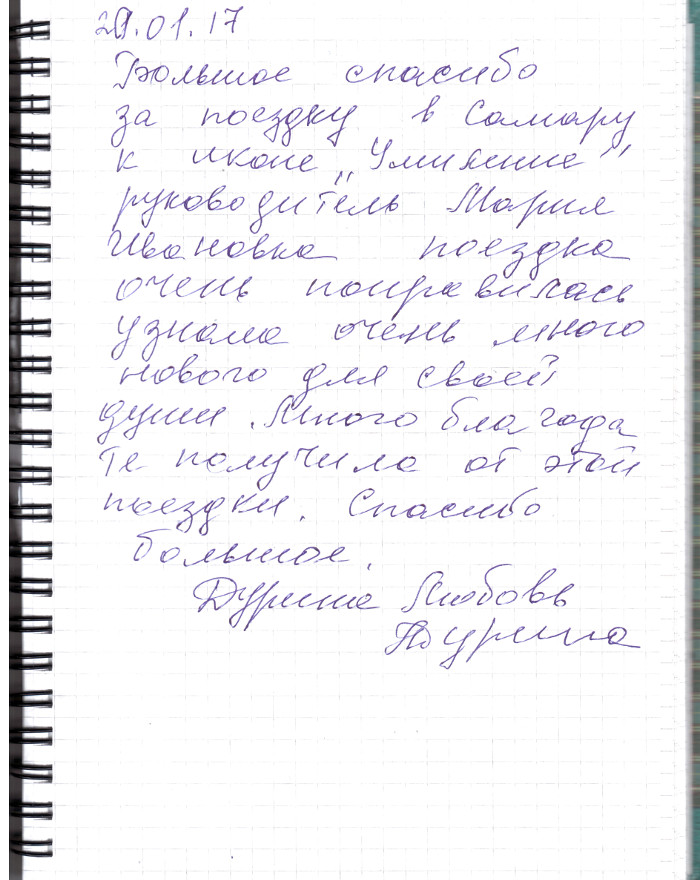 29.01.17
Большое спасибо
за поездку в Самару
к иконе „Умиление"
руководитель Мария
Ивановна поездка
очень понравилась
узнала очень много
нового для своей
души. Много благода
те получила от этой
поездки. Спасибо
большое.
Любовь